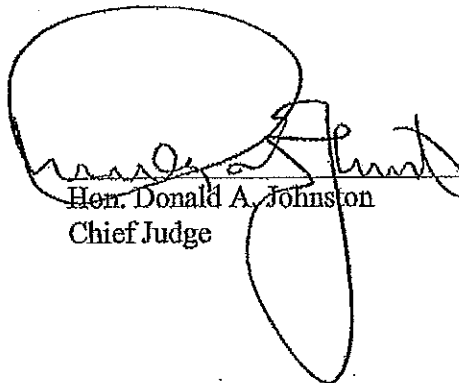 Hon. Donald A. Johnston
Chief Judge